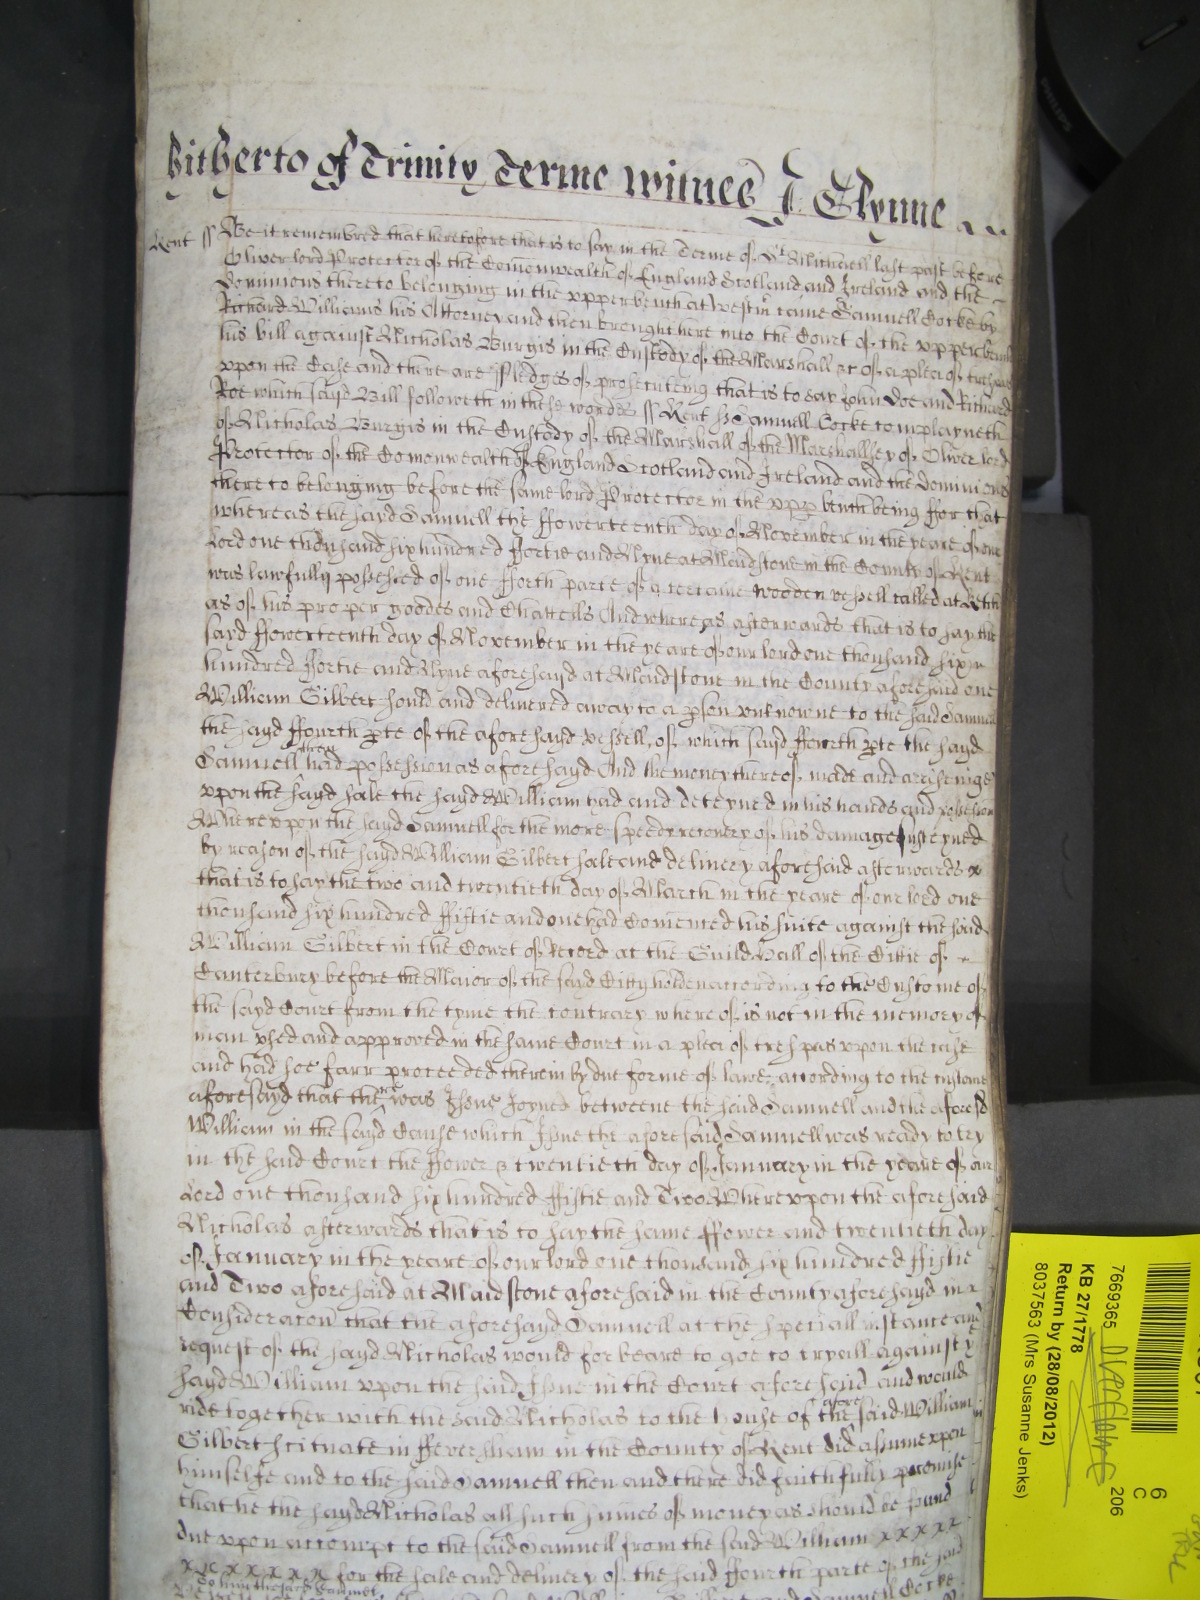 Hitherto of Trinity Terme witnes J. Glynne
Kent ss Be it remembred that heretofore that is to say in the Terme of St Michaell last past before
Oliver lord Protector of the Comonwealth of England Scotland and Ireland and the
dominions thereto belonging in the vpperbench at Westmr came Samuell Cocke by
Richard Williams his Attorney and then brought here into the Court of the vpperbench
his bill against Nicholas Burgis in the Custody of the Marshall &c of a plea of trespas
vpon the Case and there are Pledges of prosecuteing that is to say John Doe and Richard
Roe which sayd Bill followeth in these wordes ss Kent ss Samuell Cocke complayneth
of Nicholas Burgis in the Custody of the Marshall of the Marshallsey of Oliver lord
Protector of the Comonwealth of England Scotland and Ireland and the dominions
thereto belonging before the same lord Protector in the vpp bench being ffor that
whereas the sayd Samuell the ffowerteenth day of November in the yeare of our
lord one thousand six hundred ffortie and Nyne at Maidstone in the County of Kent
was lawfully possessed of one fforth parte of a certaine wooden vessell called a Ketch
as of his proper goodes and Chattells And whereas afterwards that is to say the
sayd ffowerteenth day of November in the yeare of our lord one thousand six
hundred ffortie and Nyne aforesayd at Maidstone in the County aforesaid one
William Gilbert sould and delivered away to a pson vnknowne to the said Samuell
the sayd ffourth pte of the aforesayd vessell, of which said ffourth pte the sayd
Samuell then had possession as aforesayd And the money thereof made and ariseinge
vpon the sayd sale the sayd William had and deteyned in his hands and possession
Wherevpon the sayd Samuell for the more speedy recovery of his damage susteyned
by reason of the sayd William Gilbert sale and delivery aforesaid afterwards x
that is to say the two and twentieth day of March in the yeare of our lord one
thousand six hundred ffiftie and one had Comenced his suite against the said
William Gilbert in the Court of Record at the Guild Hall of the Cittie of
Canterbury before the Maior of the sayd Citty holden according to the Custome of
the sayd Court from the tyme the contrary whereof is not in the memory of
man vsed and approved in the same Court in a plea of trespas vpon the case
and had soe farr proceeded therein by due forme of lawe according to the custome
aforesayd that there was Issue Joyned betweene the said Samuell and the aforesd
William in the sayd Cause which Issue the aforesaid Samuell was ready to try
in the said Court the ffower & twentieth day of January in the yeare of our
Lord one thousand six hundred ffiftie and Two Wherevpon the aforesaid
Nicholas afterwards that is to say the same ffower and twentieth day
of January in the yeare of our lord one thousand six hundred ffiftie
and Two aforesaid at Maidstone aforesaid in the County aforesayd in x
Consideracon that the aforesayd Samuell at the speciall instance and
request of the sayd Nicholas would forbeare to goe to tryall against ye
sayd William vpon the said Issue in the Court aforesaid and would
ride together with the said Nicholas to the house of the afore said William
Gilbert scituate in ffeversham in the County of Kent did assume vpon
himselfe and to the said Samuell then and there did faithfully promise
that he the sayd Nicholas all such sumes of money as should be found
due vpon accompt to the said Samuell from the said William x x x x x
x x x x x x x for the sale and delivery of the said ffourth parte of the said
to him the said Samuel
Samuell Cocke
7669365
KB 27/1778
Return by (28/08/2012)
8037563 (Mrs Susanne Jenks)
206
6
C
PHILIPS